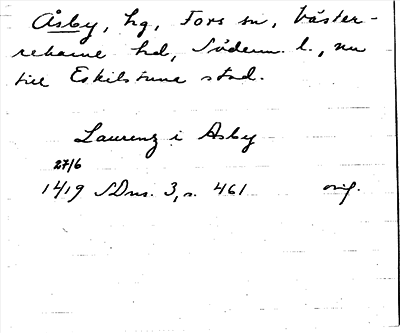 Åsby, hg, Fors sn, Väster-
rekarne hd, Söderm. l., nu
till Eskilstuna stad.
Laurenz i Asby
27/6
1419 SDns. 3, s. 461 orig.